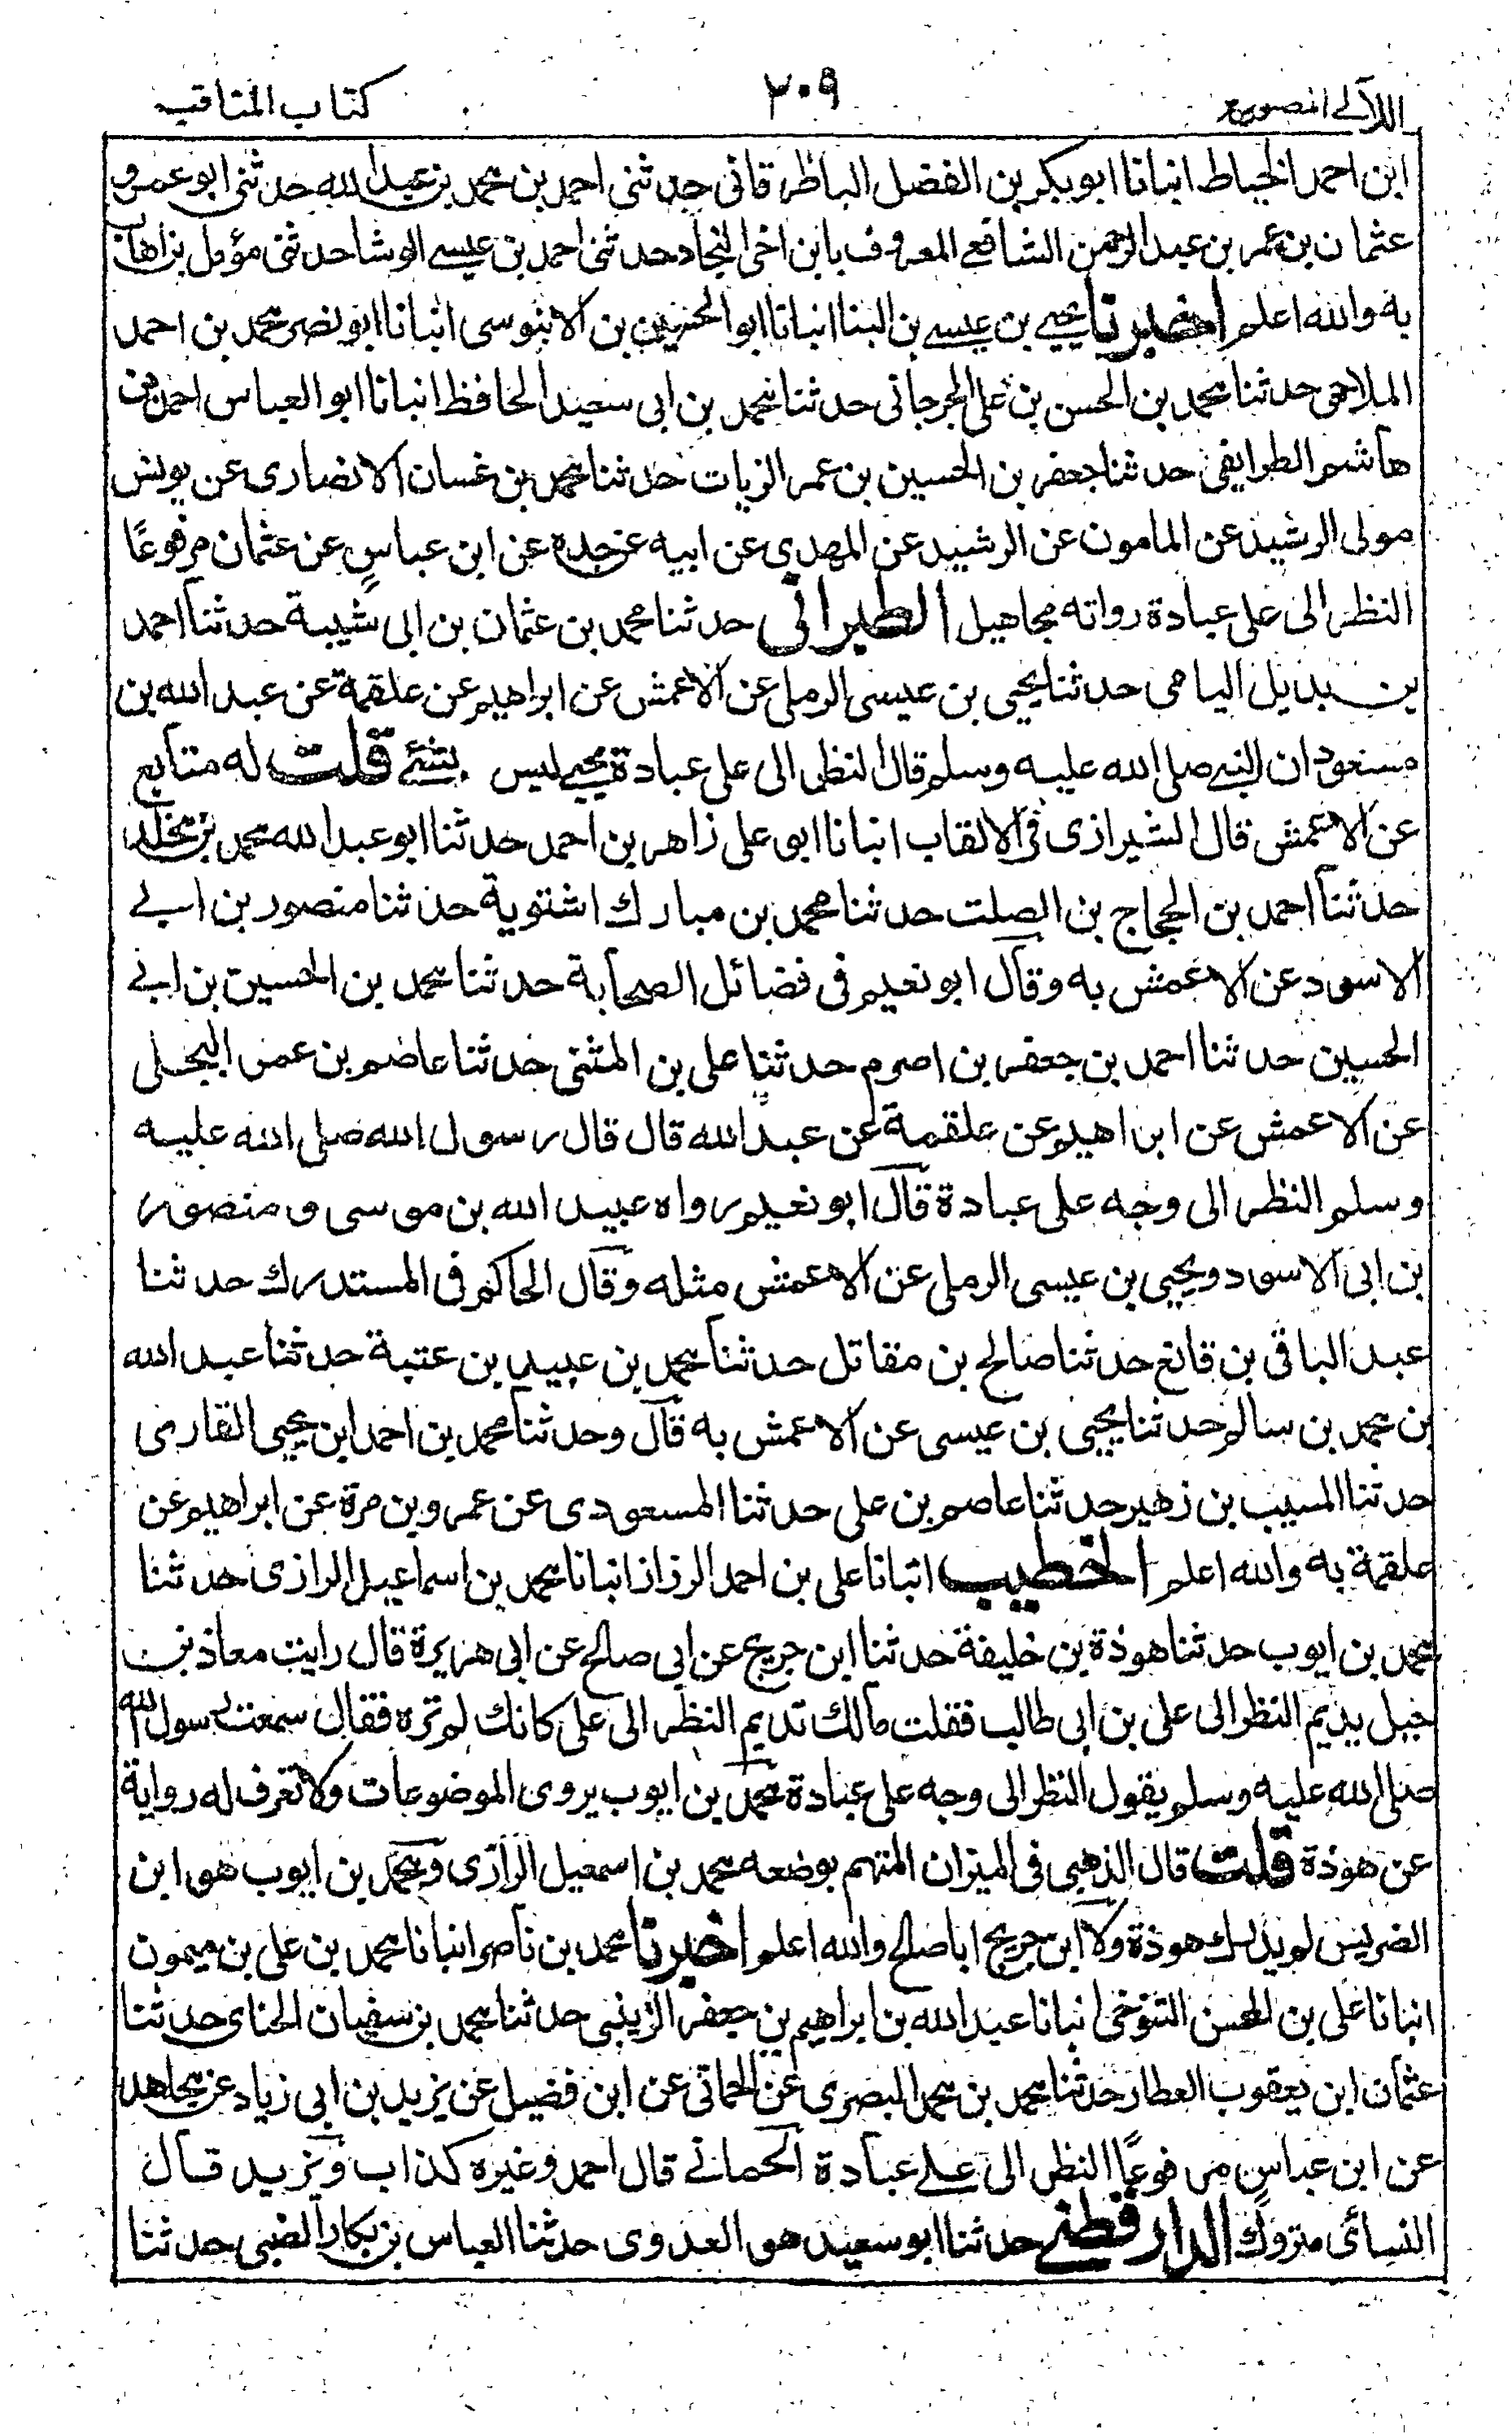 اللآلے المصنوعہ ٣٠٩ كتاب المناقب
ابن احمد الخياط انبانا ابو بكر بن الفضل الباطرقانى حدثنى احمد بن محمد بن عبد الله حدثنى ابو عمرو
عثمان بن عمر بن عبد الرحمن الشافعے المعروف بابن اخى النجاد حدثنى احمد بن عيسے الوشا حدثنى مؤمل بن اهاب
به والله اعلم اخبرنا يحيے بن عيسے بن البنا انبانا ابو الحسين بن الابنوسى انبانا ابو نصر محمد بن احمد
الملاحمى حدثنا محمد بن الحسن بن على الجرجانى حدثنا محمد بن ابى سعيد الحافظ انبانا ابو العباس احمد بن
هاشم الطرايفى حدثنا جعفر بن الحسين بن عمر الزيات حدثنا محمد بن غسان الانصارى عن يونس
مولى الرشيد عن المامون عن الرشيد عن المهدى عن ابيه عن جده عن ابن عباس عن عثمان مرفوعًا
النظر الى على عبادة رواته مجاهيل الطبرانى حدثنا محمد بن عثمان بن ابى شيبة حدثنا احمد
بن بديل اليامى حدثنا يحيى بن عيسى الرملى عن الاعمش عن ابراهيم عن علقمة عن عبد الله بن
مسعود ان النبے صلى الله عليه وسلم قال النظر الى على عبادة يحيے ليس بشئے قلت له متابع
عن الاعمش قال الشيرازى فى الالقاب انبانا ابو على زاهر بن احمد حدثنا ابو عبد الله محمد بن مخلد
حدثنا احمد بن الحجاج بن الصلت حدثنا محمد بن مبارك اشتوية حدثنا منصور بن ابے
الاسود عن الاعمش به وقال ابو نعيم فى فضائل الصحابة حدثنا محمد بن الحسين بن ابے
الحسين حدثنا احمد بن جعفر بن اصرم حدثنا على بن المثنى حدثنا عاصم بن عمر البجلى
عن الاعمش عن ابراهيم عن علقمة عن عبد الله قال قال رسول الله صلى الله عليه
وسلم النظر الى وجه على عبادة قال ابو نعيم رواه عبيد الله بن موسى و منصور
بن ابى الاسود ويحيى بن عيسى الرملى عن الاعمش مثله وقال الحاكم فى المستدرك حدثنا
عبد الباقى بن قانع حدثنا صالح بن مقاتل حدثنا محمد بن عبيد بن عتبة حدثنا عبد الله
بن محمد بن سالم حدثنا يحيى بن عيسى عن الاعمش به قال وحدثنا محمد بن احمد ابن يحيى القارى
حدثنا المسيب بن زهير حدثنا عاصم بن على حدثنا المسعودى عن عمرو بن مرة عن ابراهيم عن
علقمة به والله اعلم الخطيب انبانا على بن احمد الرزاز انبانا محمد بن اسماعيل الرازى حدثنا
محمد بن ايوب حدثنا هوذة بن خليفة حدثنا ابن جريج عن ابى صالح عن ابى هريرة قال رايت معاذ بن
جبل يديم النظر الى على بن ابى طالب فقلت مالك تديم النظر الى على كانك لم تره فقال سمعت رسول الله
صلى الله عليه وسلم يقول النظر الى وجه على عبادة محمد بن ايوب يروى الموضوعات ولا تعرف له رواية
عن هوذة قلت قال الذهبى فى الميزان المتهم بوضعه محمد بن اسمعيل الرازى ومحمد بن ايوب هو ابن
الضريس لم يدرك هوذة ولا ابن جريج ابا صالح والله اعلم اخبرنا محمد بن ناصر انبانا محمد بن على بن ميمون
انبانا على بن المحسن التنوخى انبانا عبد الله بن ابراهيم بن جعفر الزينبى حدثنا محمد بن سفيان الحناى حدثنا
عثمان ابن يعقوب العطار حدثنا محمد بن محمد البصرى عن الحمانى عن ابن فضيل عن يزيد بن ابى زياد عن مجاهد
عن ابن عباس مرفوعًا النظر الى علے عبادة الحمانے قال احمد وغيره كذاب ويزيد قال
النسائى متروك الدارقطنے حدثنا ابو سعيد هو العدوى حدثنا العباس بن بكار الضبى حدثنا